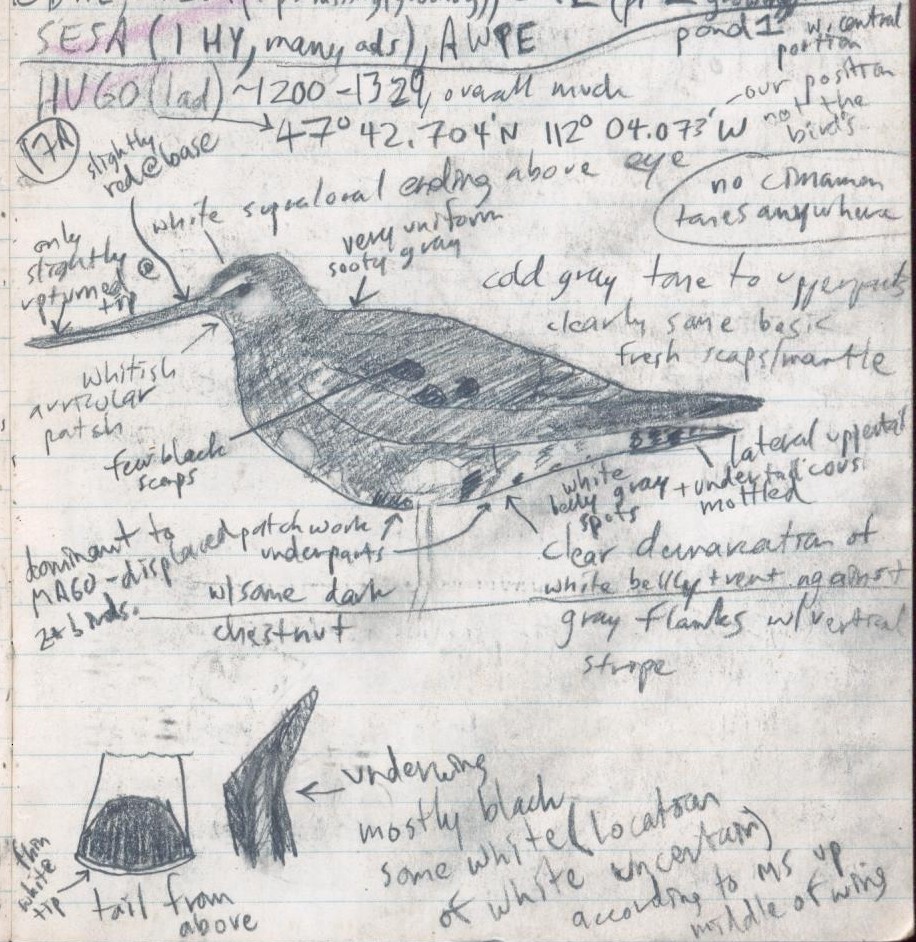 SESA (1 HY, many ads), AWPE
pond 1
w. central
portion
HUGO (1ad) ~1200-1329, overall much
47° 42.704'N 112° 04.073'W
our position
not the
bird's
17A
slightly
red@base
white supraloral ending above eye
no cinnamon
tones anywhere
only
slightly
upturned @
tip
very uniform
sooty gray
cold gray tone to upperparts
clearly some basic
fresh scaps/mantle
whitish
auricular
patch
few black
scaps
lateral uppertail
+ undertail covs.
mottled
white
belly gray
spots
dominant to
MAGO-displaced
2+ birds.
patchwork
underparts
w/some dark
chestnut
clear demarcation of
white belly + vent against
gray flanks w/ vertical
stripe
underwing
mostly black
some white (location
of white uncertain)
according to MS up
middle of wing
thin
white
tip
tail from
above